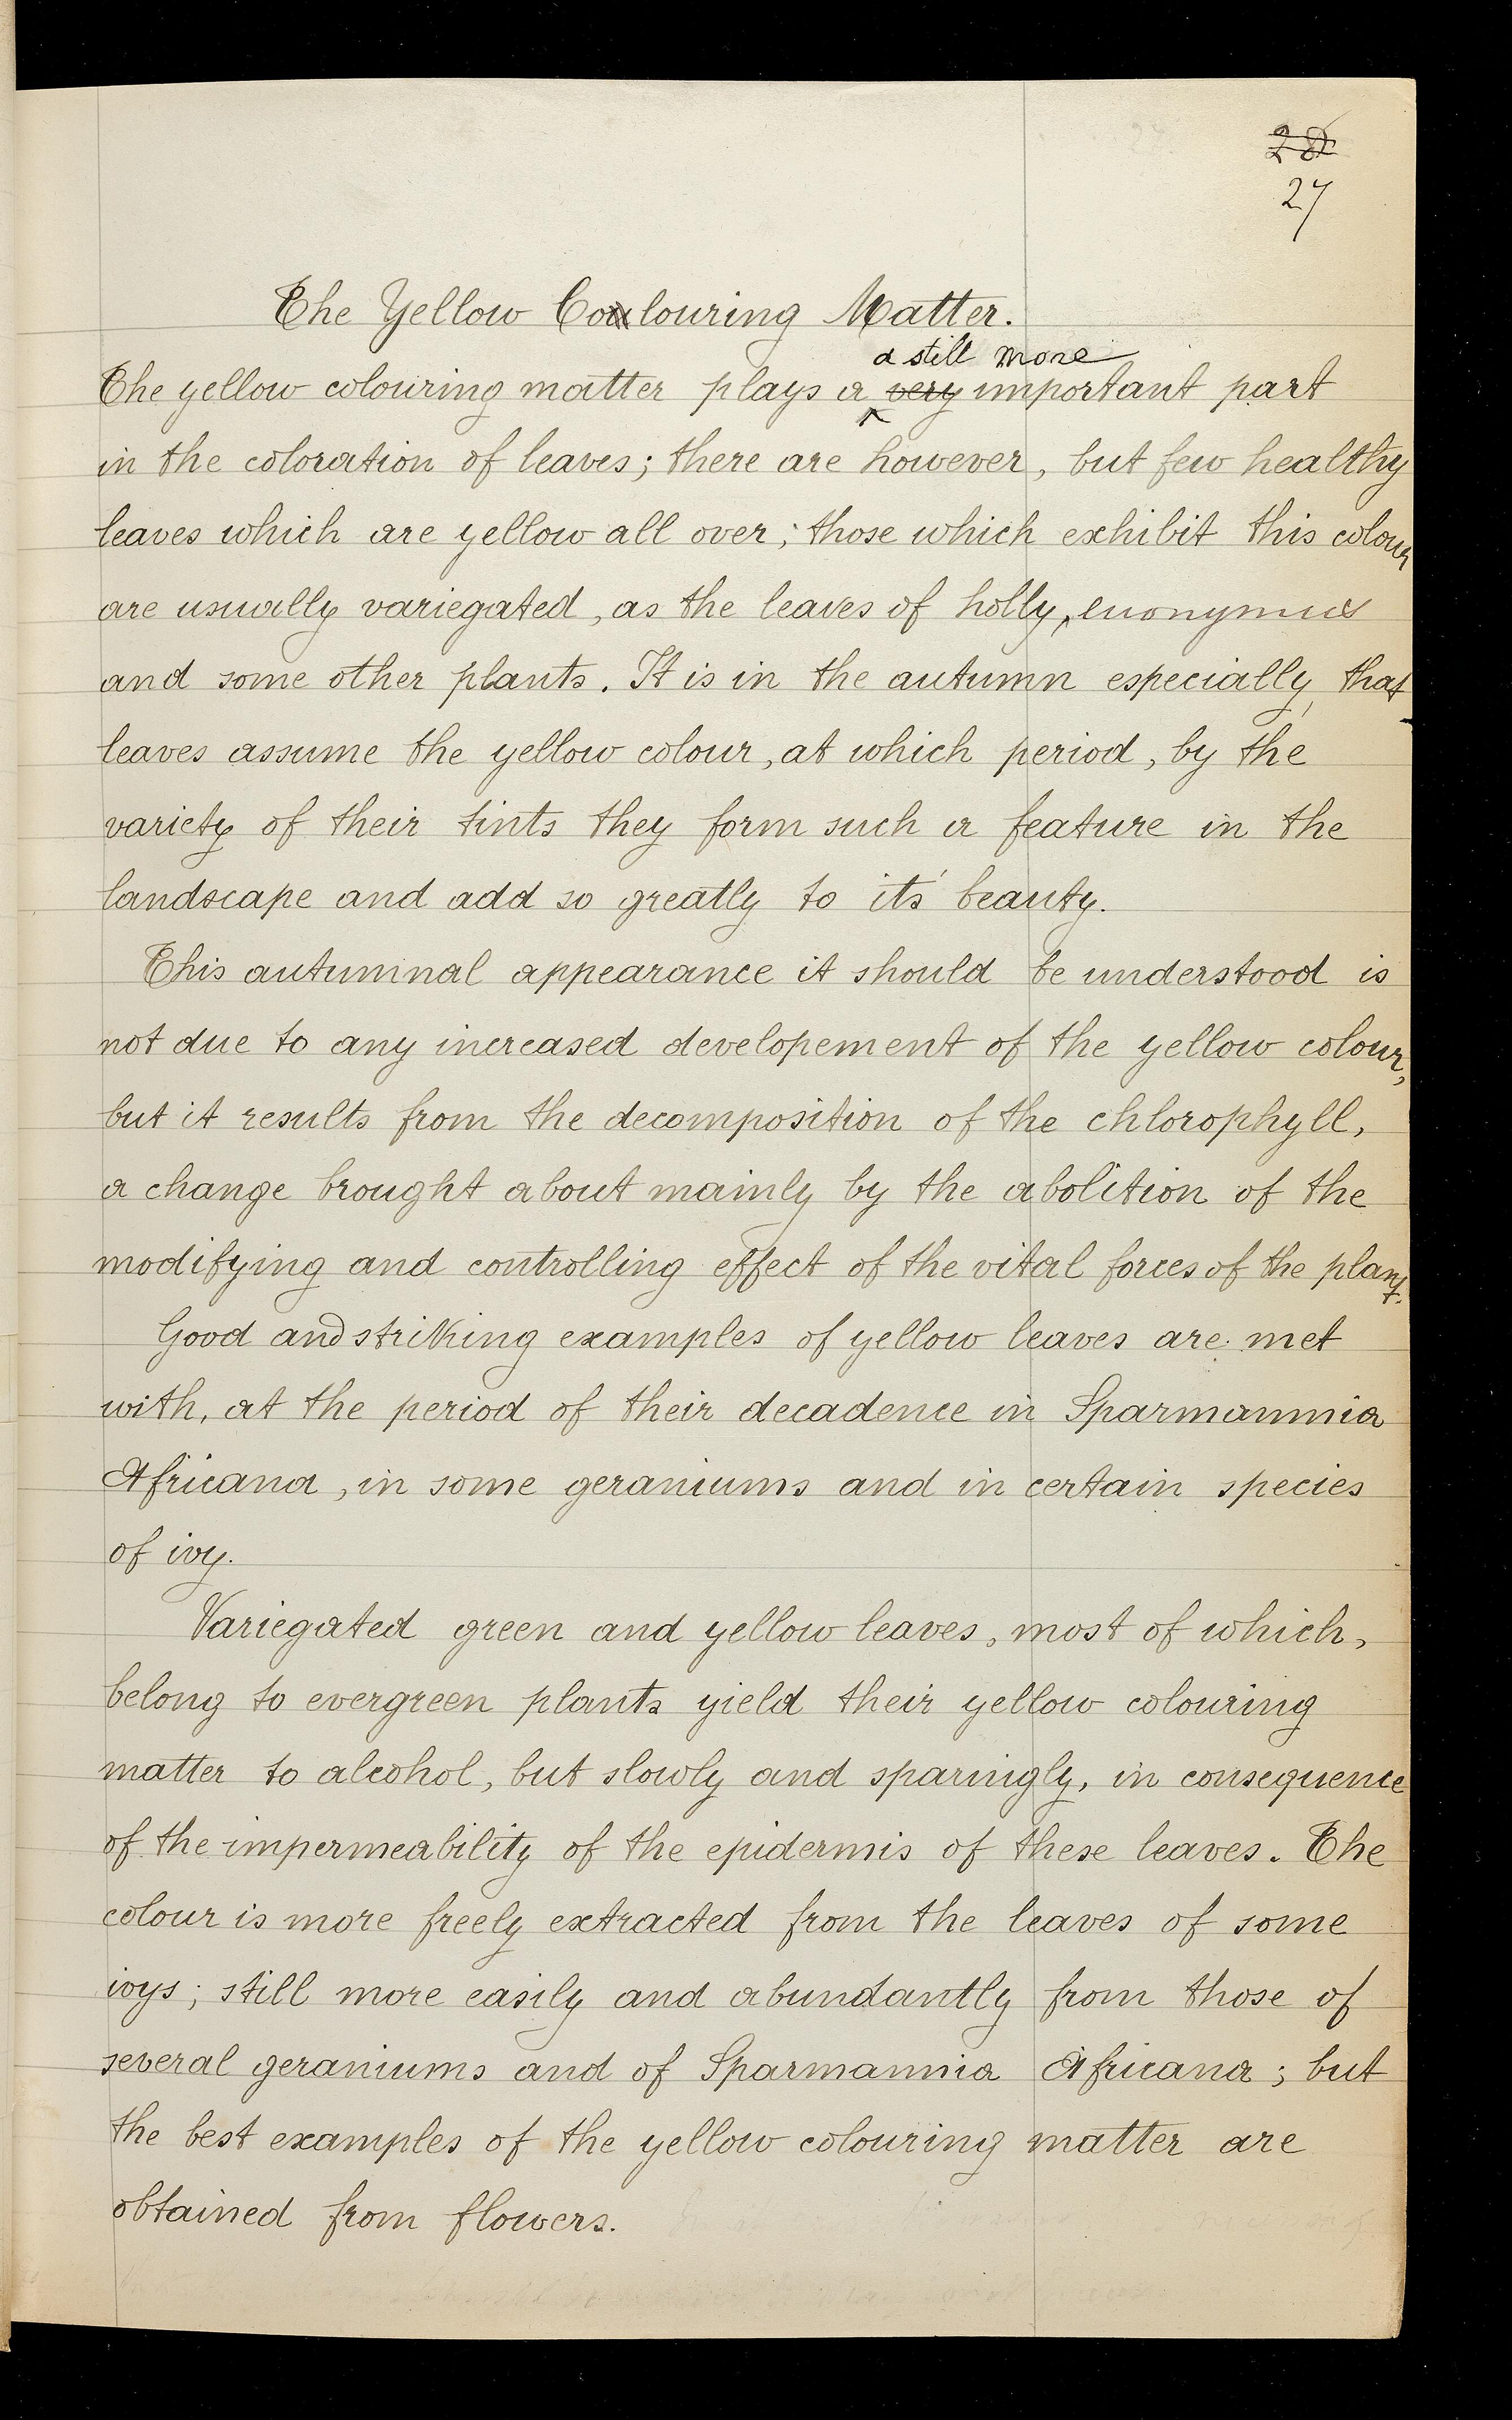 28
27
The Yellow Colouring Matter.
a still more
The yellow colouring matter plays a very important part
in the coloration of leaves; there are however, but few healthy
leaves which are yellow all over; those which exhibit this colour
are usually variegated, as the leaves of holly, euonymus
and some other plants. It is in the autumn especially, that
leaves assume the yellow colour, at which period, by the
variety of their tints they form such a feature in the
landscape and add so greatly to its' beauty.
This autumnal appearance it should be understood is
not due to any increased developement of the yellow colour,
but it results from the decomposition of the chlorophyll,
a change brought about mainly by the abolition of the
modifying and controlling effect of the vital forces of the plant.
Good and striking examples of yellow leaves are met
with, at the period of their decadence in Sparmannia
Africana, in some geraniums and in certain species
of ivy.
Variegated green and yellow leaves, most of which,
belong to evergreen plants yield their yellow colouring
matter to alcohol, but slowly and sparingly, in consequence
of the impermeability of the epidermis of these leaves. The
colour is more freely extracted from the leaves of some
ivys; still more easily and abundantly from those of
several geraniums and of Sparmannia Africana; but
the best examples of the yellow colouring matter are
obtained from flowers.